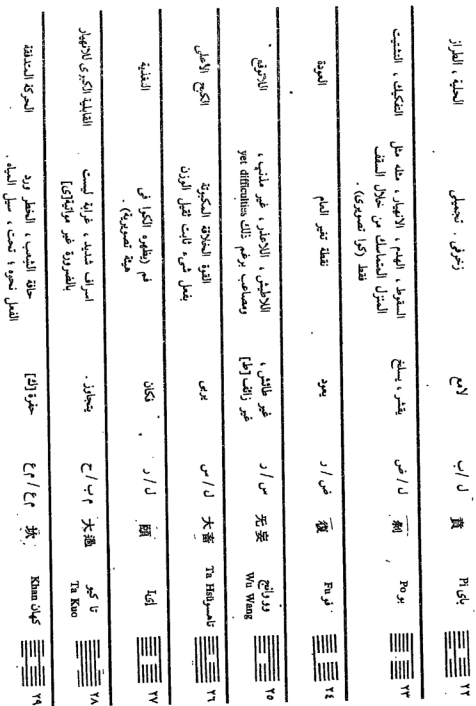 ٢٢
باى Pi
賁
ل / ب
لامع
زخرفى ، تجميلى
الحلية ، الطراز
٢٣
بو Po
剝
ل / ض
يقشر ، يسلخ
السقوط ، الهدم ، الانهيار ، مثله مثل
المنزل المتماسك من خلال السقف
فقط (كوا تصويرى) .
التفكيك ، التفتيت
٢٤
فو Fu
復
ض / ر
يعود
نقطة تغير العام
العودة
٢٥
وو وانج
Wu Wang
无妄
س / ر
غير طائش ،
غير زائف [ط]
اللاطيش ، اللاعذر ، غير مذنب ،
ومصاعب برغم ذلك yet difficulties
اللاتوقع .
٢٦
تاهسو
Ta Hsü
大畜
ل / س
يربى
القوة الخلاقة المكبوتة
بفعل شىء ثابت ثقيل الوزن
الكبح الأعلى
٢٧
اى I
頤
ل / ر
فكان
فم (ويظهر الكوا فى
هيئة تصويرية) .
التغذية
٢٨
تا كيو
Ta Kuo
大過
م ب / ح
يتجاوز .
اسراف شديد ، غرابة ليست
بالضرورة غير مواتية [ى]
القابلية الكبرى للانهيار
٢٩
كهان Khan
坎
م ع / م ع
حفرة [ك]
حافة الشيب ، الخطر ورد
الفعل نحوه ؛ تحت ، سيل المياه .
الحركة المتدفقة